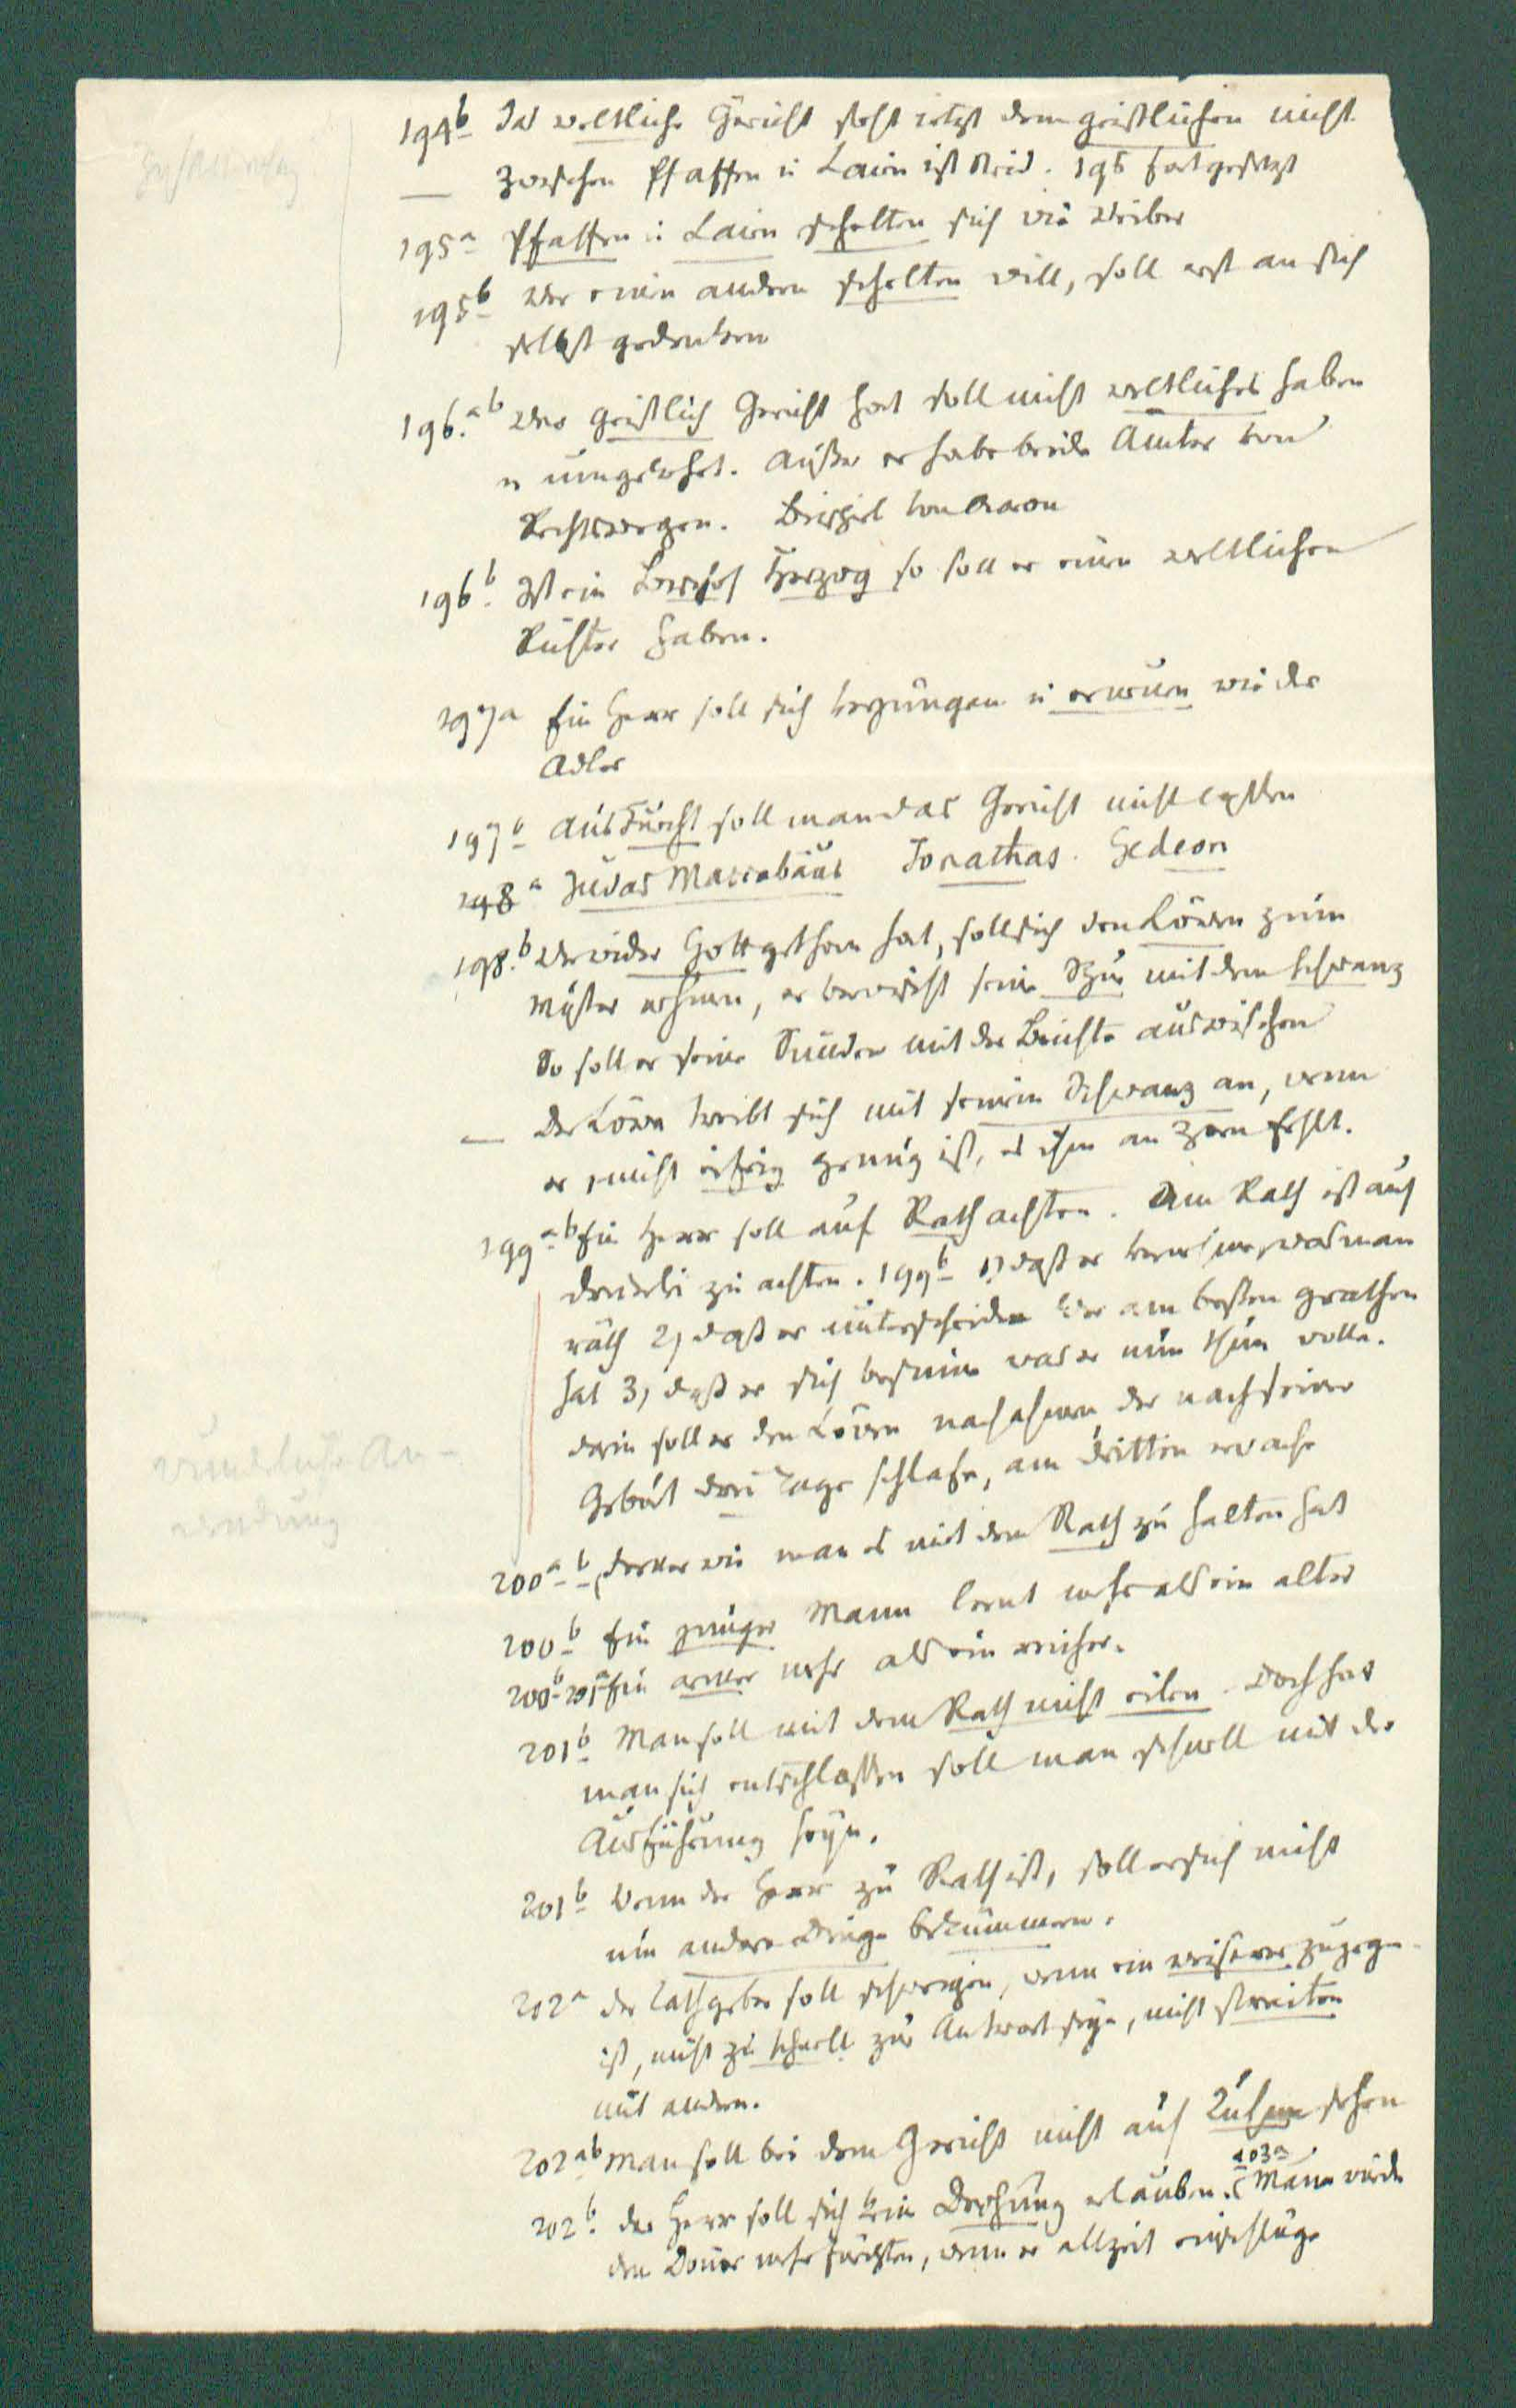 194b Das weltliche Gericht steht jetzt dem geistlichen nicht
— zwischen Pfaffen u Laien ist Neid. 195 fortgesetzt
195a Pfaffen u Laien schelten sich wie Weiber
195b Wer einen andern schelten will, soll erst an sich
selbst gedenken
196.ab Wer geistlich Gericht hat soll nicht weltliches haben
u umgekehrt. Außer er habe beide Ämter von
Rechtswegen. Beispiel von Aaron
196b. Ist ein Bischof Herzog so soll er einen weltlichen
Richter haben.
197a Ein Herr soll sich verjüngen u erneuen wie der
Adler
197b Aus Furcht soll man das Gericht nicht lassen
198a Judas Maccabäus Jonathas. Gedeon
198.b Wer wider Gott gethan hat, soll sich den Löwen zum
Muster nehmen, er verwischt seine Spur mit dem Schwanz
So soll er seine Sünden mit der Beichte auswischen
— Der Löwe treibt sich mit seinem Schwanz an, wenn
er nicht eifrig genug ist, es ihm an Zorn fehlt.
199ab Ein Herr soll auf Rath achten. Am Rath ist auf
dreierlei zu achten. 199b 1) daß er vernehme, was man
räth 2) daß er unterscheide wer am besten gerathen
hat 3) daß er sich besinne was er nun thun wolle.
darin soll er den Löwen nachahmen, der nach seiner
Geburt drei Tage schlafe, am dritten erwache
200a-b ferner wie man es mit dem Rath zu halten hat
200b Ein junger Mann lernt mehr als ein alter
200b-201a Ein armer mehr als ein reicher.
201b Man soll mit dem Rath nicht eilen. Doch hat
man sich entschlossen soll man schnell mit der
Ausführung seyn.
201b Wenn der Herr zu Rath ist, soll er sich nicht
um andere Dinge bekümmern.
202a der Rathgeber soll schweigen, wenn ein weiserer zugegen
ist, nicht zu schnell zur Antwort seyn, nicht streiten
mit andern.
202ab Man soll bei dem Gericht nicht auf sehen
202b. der Herr soll sich kein Drohung erlauben. (203a Man würde
den Donner mehr fürchten, wenn er allzeit einschlüge
wunderliche An-
wendung